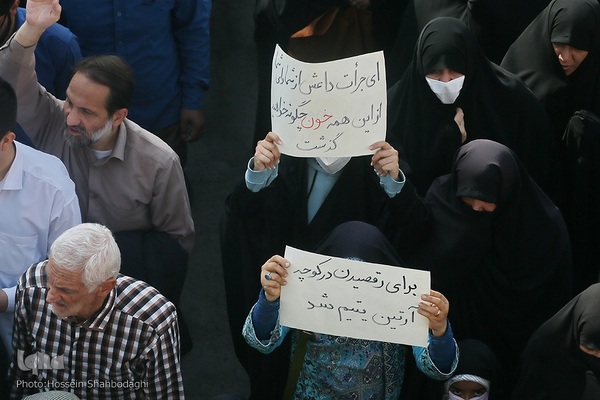 ای جرأت داعش از شما
از این همه خون چگونه خواهید
گذشت
برای رقصیدن در کوچه
آرتین یتیم شد
iqna
Photo:Hossein Shahbodaghi